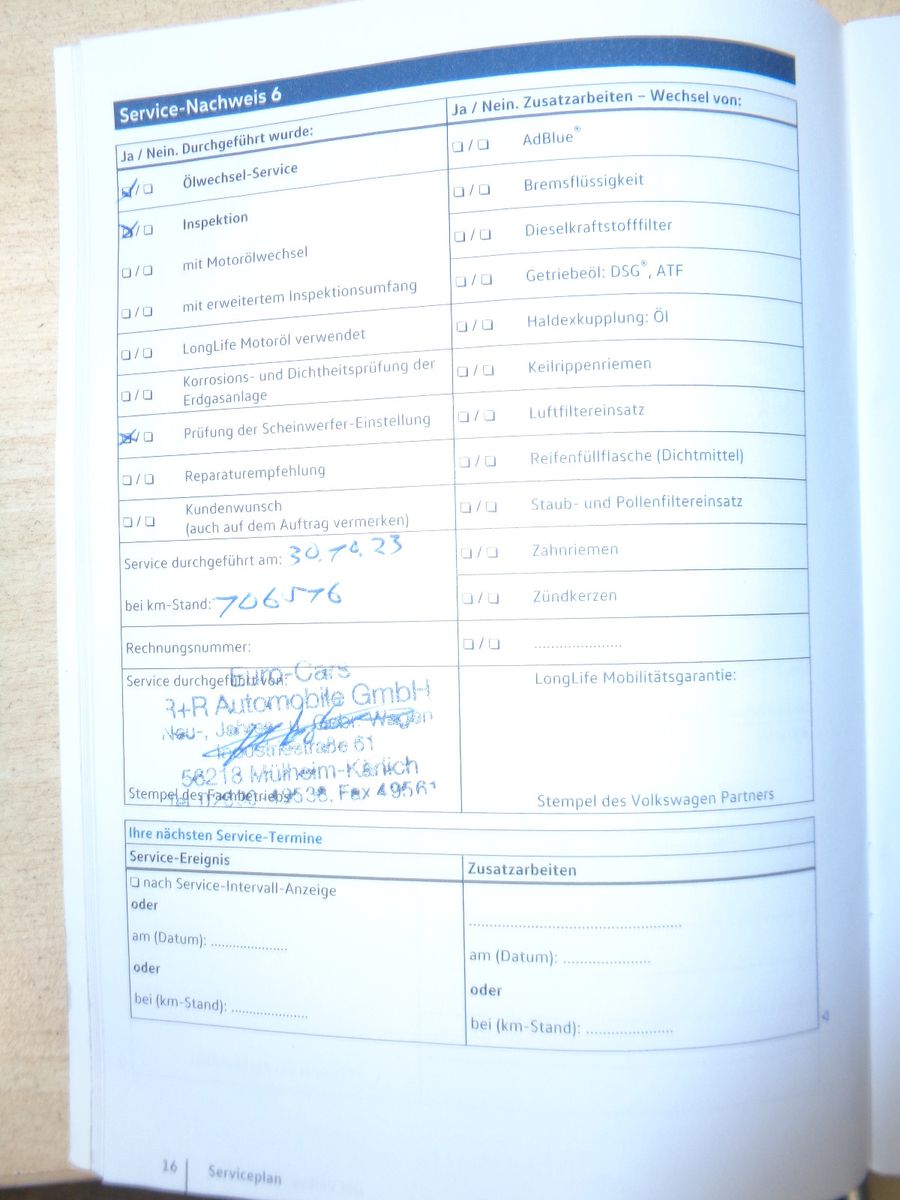 Service-Nachweis 6
Ja / Nein. Durchgeführt wurde:
❑ / ❑ Ölwechsel-Service
❑ / ❑ Inspektion
❑ / ❑ mit Motorölwechsel
❑ / ❑ mit erweitertem Inspektionsumfang
❑ / ❑ LongLife Motoröl verwendet
❑ / ❑ Korrosions- und Dichtheitsprüfung der
Erdgasanlage
❑ / ❑ Prüfung der Scheinwerfer-Einstellung
❑ / ❑ Reparaturempfehlung
❑ / ❑ Kundenwunsch
(auch auf dem Auftrag vermerken)
Service durchgeführt am: 30.10.23
bei km-Stand: 106576
Rechnungsnummer:
Service durchgeführt von:
Euro-Cars
R+R Automobile GmbH
Neu-, Jahres- u. Gebr. Wagen
Industriestraße 61
56218 Mülheim-Kärlich
49538, Fax 49561
Stempel des Fachbetriebs
Ja / Nein. Zusatzarbeiten – Wechsel von:
❑ / ❑ AdBlue®
❑ / ❑ Bremsflüssigkeit
❑ / ❑ Dieselkraftstofffilter
❑ / ❑ Getriebeöl: DSG®, ATF
❑ / ❑ Haldexkupplung: Öl
❑ / ❑ Keilrippenriemen
❑ / ❑ Luftfiltereinsatz
❑ / ❑ Reifenfüllflasche (Dichtmittel)
❑ / ❑ Staub- und Pollenfiltereinsatz
❑ / ❑ Zahnriemen
❑ / ❑ Zündkerzen
❑ / ❑ ......................
LongLife Mobilitätsgarantie:
Stempel des Volkswagen Partners
Ihre nächsten Service-Termine
Service-Ereignis
❑ nach Service-Intervall-Anzeige
oder
am (Datum): ...................
oder
bei (km-Stand): ...................
Zusatzarbeiten
.....................................................
am (Datum): .....................
oder
bei (km-Stand): .....................
16 Serviceplan